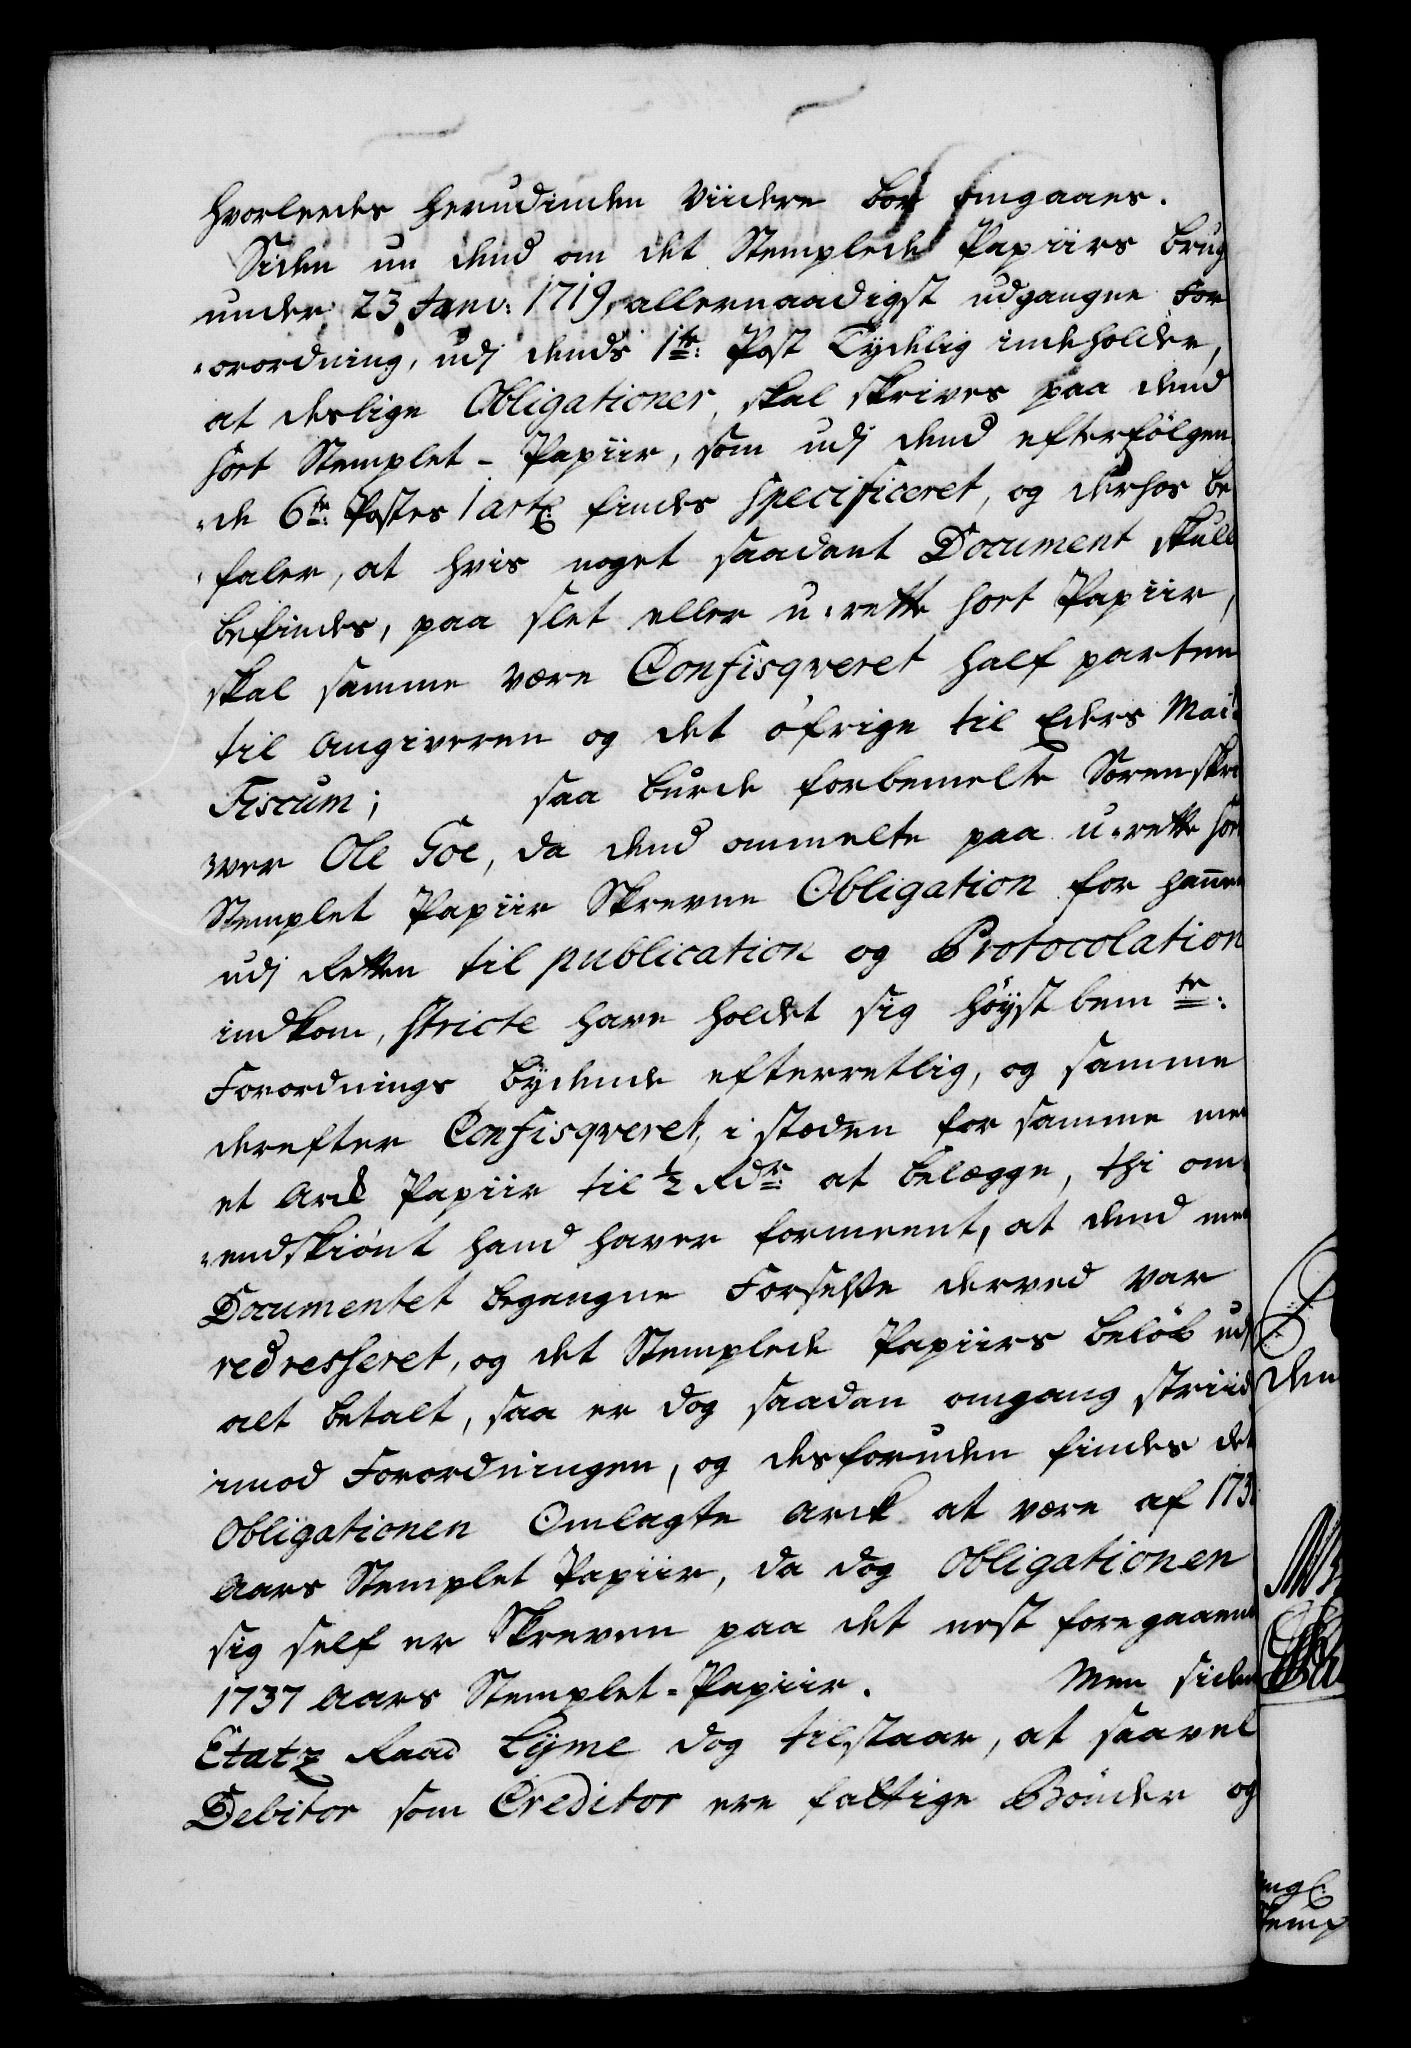 hvorleedes herudinden Viidere bør omgaaes.
Siden nu dend om det Stemplede Papiirs brug
under 23 Janv: 1719. allernaadigst udgangne For
orordning, udj dends 1te: Post Tydelig indeholder,
at deslige Obligationer, skal skrives paa dend
sort Stemplet-Papiir, som udj dend efterfølgen
de 6te: Postes 1 art: findes Specificeret, og derhos be
faler, at hvis noget saadant Document skulle
befindes, paa slet eller u-rette sort Papiir,
skal samme være Confisqveret half parten
til Angiveren og det øfrige til Eders Mai:
Fiscum; saa burde forbemelte Sorenskri
ver Ole Toe, da dend ommelte paa u-rette sort
Stemplet Papiir Skrevne Obligation for hannem
udj Retten til publication og Protocolation
indkom, stricte have holdet sig Høystbemte:
Forordnings bydende efterretlig, og samme
derefter Confisqveret, i stæden for samme med
et Arck Papiir til ½ Rdr: at belægge, thi om-
endskiønt hand haver formeent, at dend med
Documentet begangne Forseelse derved var
redresseret, og det Stemplede Papiirs beløb udj
alt betalt, saa er dog saadan omgang striid
imod Forordningen, og desforuden findes det
Obligationen Omlagte Arck at være af 173
Aars Stemplet Papiir, da dog Obligationen
sig self er Skreven paa det nest foregaaende
1737 Aars Stemplet-Papiir. Men siden
Etatz Raad Lyme dog tilstaar, at saavel
Debitor som Creditor ere fattige Bønder og